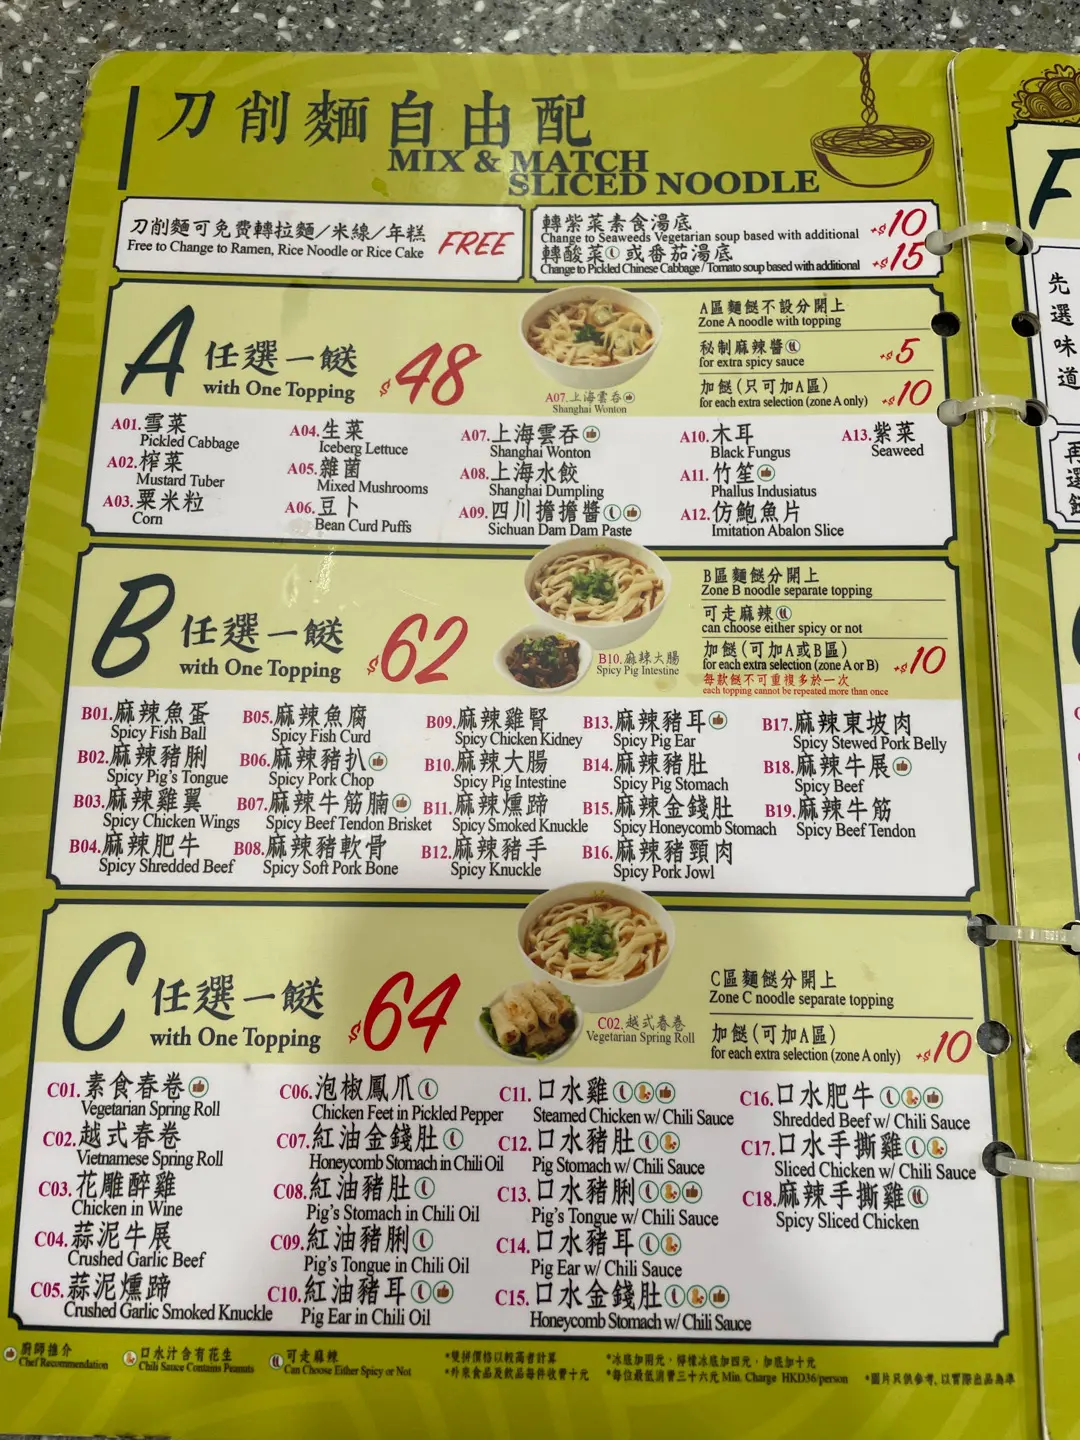 刀削麵自由配
MIX & MATCH
SLICED NOODLE
刀削麵可免費轉拉麵/米線/年糕
Free to Change to Ramen, Rice Noodle or Rice Cake
FREE
轉紫菜素食湯底
Change to Seaweeds Vegetarian soup based with additional
+$10
轉酸菜或番茄湯底
Change to Pickled Chinese Cabbage / Tomato soup based with additional
+$15
A 任選一餸
with One Topping
$48
A07.上海雲吞
Shanghai Wonton
A區麵餸不設分開上
Zone A noodle with topping
秘制麻辣醬
for extra spicy sauce
+$5
加餸(只可加A區)
for each extra selection (zone A only)
+$10
A01.雪菜
Pickled Cabbage
A02.榨菜
Mustard Tuber
A03.粟米粒
Corn
A04.生菜
Iceberg Lettuce
A05.雜菌
Mixed Mushrooms
A06.豆卜
Bean Curd Puffs
A07.上海雲吞
Shanghai Wonton
A08.上海水餃
Shanghai Dumpling
A09.四川擔擔醬
Sichuan Dam Dam Paste
A10.木耳
Black Fungus
A11.竹笙
Phallus Indusiatus
A12.仿鮑魚片
Imitation Abalon Slice
A13.紫菜
Seaweed
B 任選一餸
with One Topping
$62
B10.麻辣大腸
Spicy Pig Intestine
B區麵餸分開上
Zone B noodle separate topping
可走麻辣
can choose either spicy or not
加餸(可加A或B區)
for each extra selection (zone A or B)
+$10
每款餸不可重複多於一次
each topping cannot be repeated more than once
B01.麻辣魚蛋
Spicy Fish Ball
B02.麻辣豬脷
Spicy Pig's Tongue
B03.麻辣雞翼
Spicy Chicken Wings
B04.麻辣肥牛
Spicy Shredded Beef
B05.麻辣魚腐
Spicy Fish Curd
B06.麻辣豬扒
Spicy Pork Chop
B07.麻辣牛筋腩
Spicy Beef Tendon Brisket
B08.麻辣豬軟骨
Spicy Soft Pork Bone
B09.麻辣雞腎
Spicy Chicken Kidney
B10.麻辣大腸
Spicy Pig Intestine
B11.麻辣燻蹄
Spicy Smoked Knuckle
B12.麻辣豬手
Spicy Knuckle
B13.麻辣豬耳
Spicy Pig Ear
B14.麻辣豬肚
Spicy Pig Stomach
B15.麻辣金錢肚
Spicy Honeycomb Stomach
B16.麻辣豬頸肉
Spicy Pork Jowl
B17.麻辣東坡肉
Spicy Stewed Pork Belly
B18.麻辣牛展
Spicy Beef
B19.麻辣牛筋
Spicy Beef Tendon
C 任選一餸
with One Topping
$64
C02.越式春卷
Vegetarian Spring Roll
C區麵餸分開上
Zone C noodle separate topping
加餸(可加A區)
for each extra selection (zone A only)
+$10
C01.素食春卷
Vegetarian Spring Roll
C02.越式春卷
Vietnamese Spring Roll
C03.花雕醉雞
Chicken in Wine
C04.蒜泥牛展
Crushed Garlic Beef
C05.蒜泥燻蹄
Crushed Garlic Smoked Knuckle
C06.泡椒鳳爪
Chicken Feet in Pickled Pepper
C07.紅油金錢肚
Honeycomb Stomach in Chili Oil
C08.紅油豬肚
Pig's Stomach in Chili Oil
C09.紅油豬脷
Pig's Tongue in Chili Oil
C10.紅油豬耳
Pig Ear in Chili Oil
C11.口水雞
Steamed Chicken w/ Chili Sauce
C12.口水豬肚
Pig Stomach w/ Chili Sauce
C13.口水豬脷
Pig's Tongue w/ Chili Sauce
C14.口水豬耳
Pig Ear w/ Chili Sauce
C15.口水金錢肚
Honeycomb Stomach w/ Chili Sauce
C16.口水肥牛
Shredded Beef w/ Chili Sauce
C17.口水手撕雞
Sliced Chicken w/ Chili Sauce
C18.麻辣手撕雞
Spicy Sliced Chicken
廚師推介
Chef Recommendation
口水汁含有花生
Chili Sauce Contains Peanuts
可走麻辣
Can Choose Either Spicy or Not
*雙拼價格以較高者計算
*外來食品及飲品每件收費十元
*冰底加兩元，檸檬冰底加四元，加底加十元
*每位最低消費三十六元 Min. Charge HKD36/person
*圖片只供參考，以實際出品為準
F
先
選
味
道
再
選